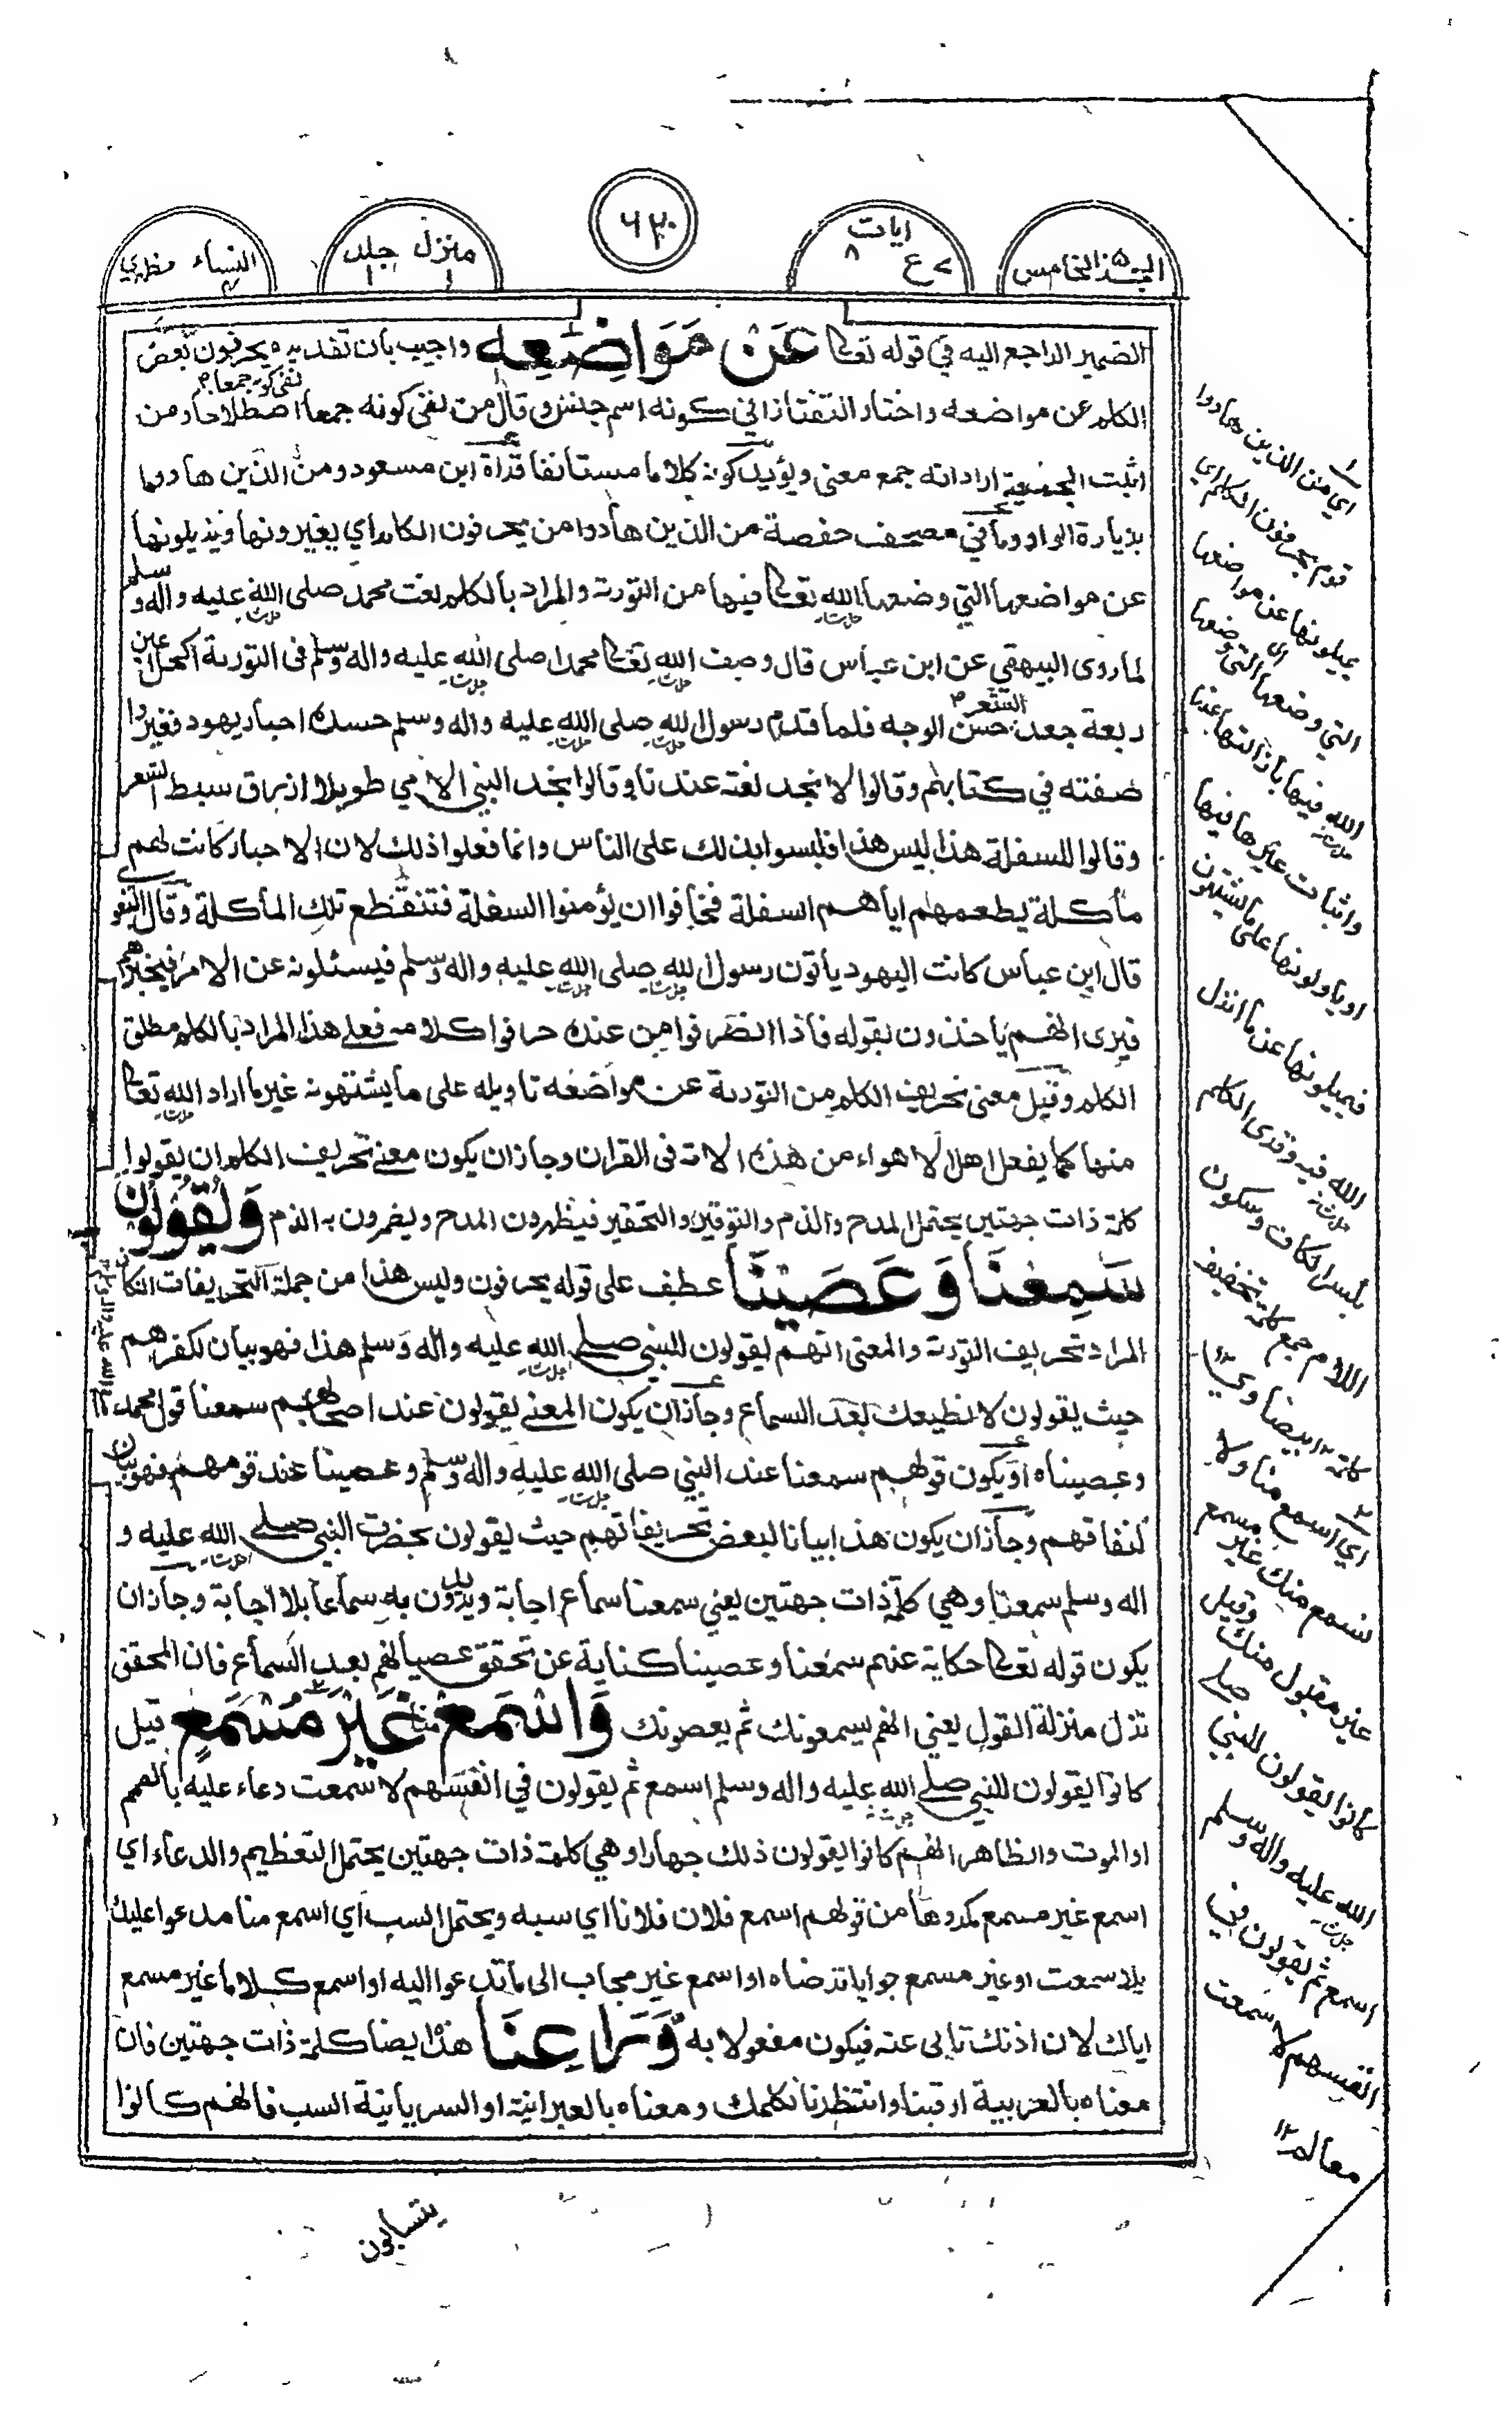 الجزء الخامس ٥
ايات ٨ ع ٧
٦٣٠
منزل ١ جلد ١
النساء ٤ مظهري
الضمير الراجع اليه في قوله تعالى عَنْ مَوَاضِعِهِ واجيب بان تقديره يحرفون بعض
الكلم عن مواضعه واختار التفتازاني كونه اسم جنس وقال من نفى كونه جمعا اصطلاحا ومن
اثبت الجمعية اراد انه جمع معنى ويؤيد كونه كلاما مستانفا قراة ابن مسعود ومن الذين هادوا
بزيادة الواو وما في مصحف حفصة من الذين هادوا من يحرفون الكلم اي يغيرونها ويزيلونها
عن مواضعها التي وضعها الله تعالى فيها من التورىة والمراد بالكلم نعت محمد صلى الله عليه واله وسلم
لما روى البيهقي عن ابن عباس قال وصف الله تعالى محمدا صلى الله عليه واله وسلم فى التورىة اكحل عين
ربعة جعد الشعر حسن الوجه فلما قدم رسول الله صلى الله عليه واله وسلم حسده احبار يهود فغيروا
صفته في كتابهم وقالوا لا نجد نعته عندنا وقالوا نجد النبي الامي طويلا ازرق سبط الشعر
وقالوا للسفلة هذا ليس هذا فلبسوا بذلك على الناس وانما فعلوا ذلك لان الاحبار كانت لهم
مأكلة يطعمهم اياهم السفلة فخافوا ان يؤمنوا السفلة فتنقطع تلك المأكلة وقال البغوي
قال ابن عباس كانت اليهود ياتون رسول الله صلى الله عليه واله وسلم فيسئلونه عن الامر فيخبرهم
فيرى انهم ياخذون بقوله فاذا انصرفوا من عنده حرفوا كلامه فعلى هذا المراد بالكلم مطلق
الكلم وقيل معنى تحريف الكلم من التورىة عن مواضعه تاويله على ما يشتهونه غير ما اراد الله تعالى
منها كما يفعل اهل الاهواء من هذه الامة فى القران وجاز ان يكون معنى تحريف الكلم ان يقولوا
كلمة ذات جهتين يحتمل المدح والذم والتوقير والتحقير فيظهرون المدح ويضمرون به الذم وَيَقُوْلُوْنَ
سَمِعْنَا وَعَصَيْنَا عطف على قوله يحرفون وليس هذا من جملة التحريفات ان كان
المراد تحريف التورىة والمعنى انهم يقولون للنبي صلى الله عليه واله وسلم هذا فهو بيان لكفرهم
حيث يقولون لا نطيعك بعد السماع وجاز ان يكون المعنى يقولون عند اصحابهم سمعنا قول محمد صلى الله عليه واله وسلم
وعصيناه او يكون قولهم سمعنا عند النبي صلى الله عليه واله وسلم وعصينا عند قومهم فهو بيان
لنفاقهم وجاز ان يكون هذا بيانا لبعض تحريفاتهم حيث يقولون بحضرت النبي صلى الله عليه و
اله وسلم سمعنا وهي كلمة ذات جهتين يعني سمعنا سماع اجابة ويريدون به سماعا بلا اجابة وجاز ان
يكون قوله تعالى حكاية عنهم سمعنا وعصينا كناية عن تحقق عصيانهم بعد السماع فان المحقق
نزل منزلة القول يعني انهم يسمعونك ثم يعصونك وَاسْمَعْ منا غَيْرَ مُسْمَعٍ قيل
كانوا يقولون للنبي صلى الله عليه واله وسلم اسمع ثم يقولون في انفسهم لا سمعت دعاء عليه بالصمم
او الموت والظاهر انهم كانوا يقولون ذلك جهارا وهي كلمة ذات جهتين يحتمل التعظيم والدعاء اي
اسمع غير مسمع مكروها من قولهم اسمع فلان فلانا اي سبه ويحتمل السب اي اسمع منا مدعوا عليك
بلا سمعت او غير مسمع جوابا ترضاه او اسمع غير مجاب الى ما تدعوا اليه او اسمع كلاما غير مسمع
اياك لان اذنك تابى عنه فيكون مفعولا به وَّرَاعِنَا هذا ايضا كلمة ذات جهتين فان
معناه بالعربية ارقبنا وانتظرنا نكلمك ومعناه بالعبرانية او السريانية السب فانهم كانوا
يتسابون
١ اي من الذين هادوا
قوم يحرفون الكلم اي
يميلونها عن مواضعها اي
التي وضعها
الله فيها بازالتها عنها
واثبات غيرها فيها
او ياولونها على ما يشتهون
فيميلونها عن ما انزل
الله فيه وقرئ الكلم
بكسر الكاف وسكون
اللام جمع كلمة تخفيف
كلمة ١٢ بيضاوي ١٢
٢ اي اسمع منا ولا
نسمع منك غير مسمع
غير مقبول منك وقيل
كانوا يقولون للنبي صلى
الله عليه واله وسلم
اسمع ثم يقولون في
انفسهم لا سمعت
معالم ١٢